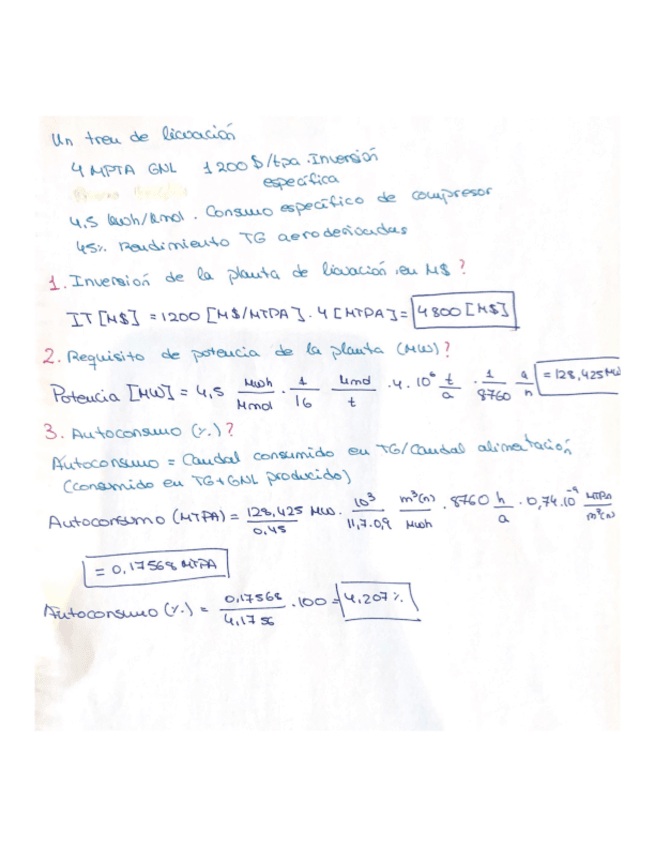 Un tren de licuación
4 MPTA GNL 1200 $/tpa . Inversión
específica
4,5 kwh/kmol . Consumo específico de compresor
45% Rendimiento TG aeroderivadas
1. Inversión de la planta de licuación, en M$?
IT [M$] = 1200 [M$/MTPA] . 4 [MTPA] = 4800 [M$]
2. Requisito de potencia de la planta (MW)?
Potencia [MW] = 4,5 Mwh/Mmol . 1/16 Mmol/t . 4 . 10⁶ t/a . 1/8760 a/h = 128,425 MW
3. Autoconsumo (%)?
Autoconsumo = Caudal consumido en TG/Caudal alimentación
(consumido en TG + GNL producido)
Autoconsumo (MTPA) = 128,425/0,45 MW . 10³/11,7.0,9 m³(n)/Mwh . 8760 h/a . 0,74.10⁻⁹ MTPA/m³(n)
= 0,17568 MTPA
Autoconsumo (%) = 0,17568/4,1756 . 100 = 4,207%